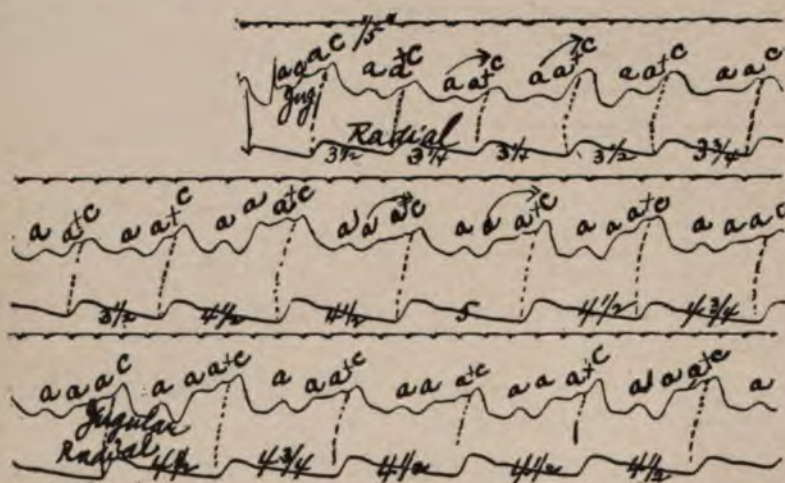 a a a c 1/5" a a+c a a+c a a+c a a+c a a c
Jug
Radial
3 1/2 3 1/4 3 1/4 3 1/2 3 3/4
a a+c a a+c a a a+c a a a+c a a a+c a a a+c a a a c
3 1/2 4 1/2 4 1/2 5 4 1/2 4 3/4
a a a c a a a+c a a a+c a a a+c a a a+c a a a+c a
Jugular
Radial
4 1/2 4 3/4 4 1/2 4 1/2 4 1/2